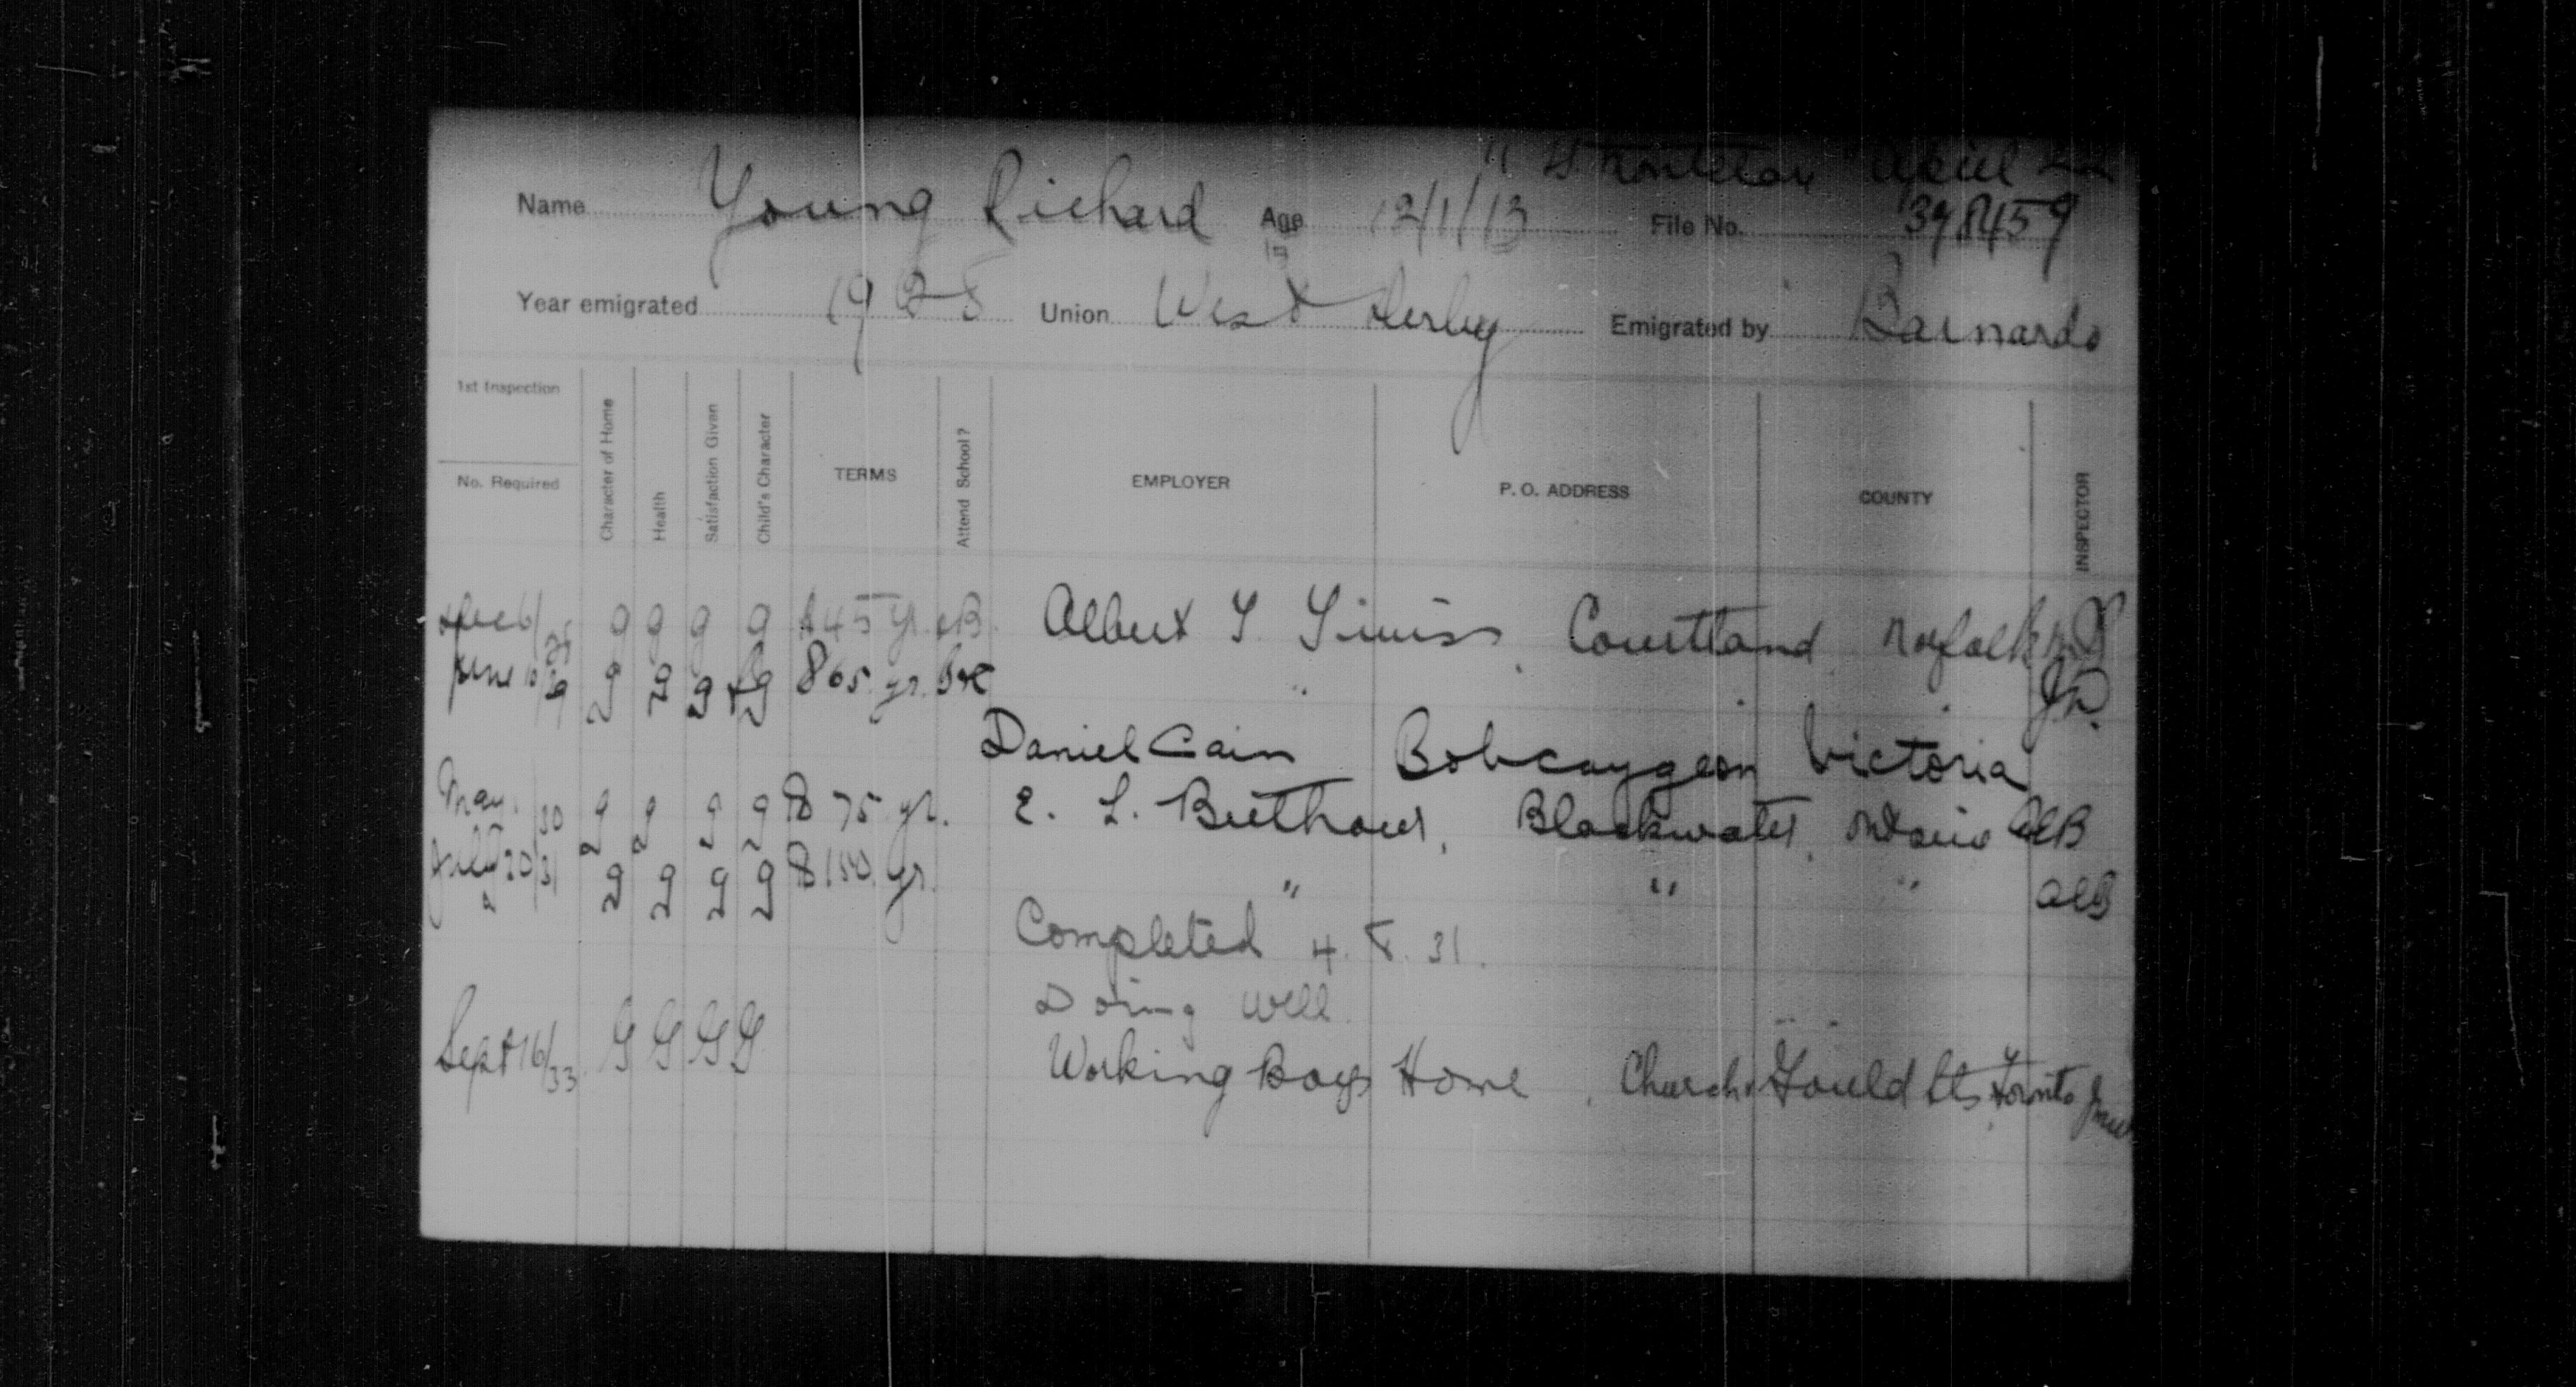 April
Name Young Richard Age 12/1/13 File No. 398459
15
Year emigrated 1928 Union West Derby Emigrated by Barnardo
1st Inspection
No. Required
Character of Home
Health
Satisfaction Given
Child's Character
TERMS
Attend School?
EMPLOYER
P. O. ADDRESS
COUNTY
INSPECTOR
Dec 6/28 g g g g $45 yr. Albert Courtland Norfolk
June 10/29 g g g g $65 yr. "
Daniel Cain Bobcaygeon Victoria
May /30 g g g g $75 yr. E. L. Blackwater, Ontario AEB
July 20/31 g g g g $150 yr. " " " AEB
Completed 4. 8. 31.
Doing well.
Sept 16/33 G G G G Working Boys Home, Church & Gould Sts Toronto